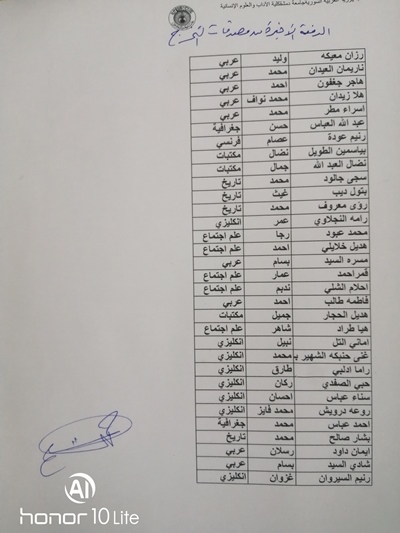 الجمهورية العربية السورية جامعة دمشق كلية الآداب والعلوم الإنسانية
الدفعة الأخيرة من مصدقات التخرج
رزان معيكه وليد عربي
ناريمان العيدان محمد عربي
هاجر جغفون احمد عربي
هلا زيدان محمد نواف عربي
اسراء مطر محمد عربي
عبد الله العباس حسن جغرافية
رنيم عودة عصام فرنسي
بياسمين الطويل نضال مكتبات
نضال العبد الله جمال مكتبات
سجى جالود محمد تاريخ
بتول ديب غيث تاريخ
رؤى معروف محمد تاريخ
رامه النجلاوي عمر انكليزي
محمد عبود رجا علم اجتماع
هديل خلايلي احمد علم اجتماع
مسره السيد بسام عربي
قمراحمد عمار علم اجتماع
احلام الشلي نديم علم اجتماع
فاطمه طالب احمد عربي
هديل الحجار جميل مكتبات
هيا طراد شاهر علم اجتماع
اماني التل نبيل انكليزي
غنى حنبكه الشهير بـ محمد انكليزي
راما ادلبي طارق انكليزي
حبي الصفدي ركان انكليزي
سناء عباس احسان انكليزي
روعه درويش محمد فايز انكليزي
احمد عباس محمد جغرافية
بشار صالح محمد تاريخ
ايمان داود رسلان عربي
شادي السيد بسام عربي
رنيم السيروان غزوان انكليزي
AI
honor 10 Lite